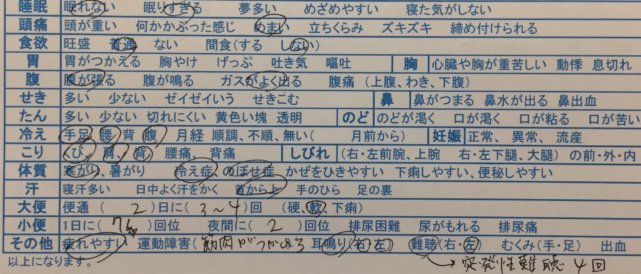 睡眠 眠れない 眠りすぎる 夢多い めざめやすい 寝た気がしない
頭痛 頭が重い 何かかぶった感じ めまい 立ちくらみ ズキズキ 締め付けられる
食欲 旺盛 普通 ない 間食(する しない)
胃 胃がつかえる 胸やけ げっぷ 吐き気 嘔吐 胸 心臓や胸が重苦しい 動悸 息切れ
腹 腹が張る 腹が鳴る ガスがよく出る 腹痛 (上腹、わき、下腹)
せき 多い 少ない ゼイゼイいう せきこむ 鼻 鼻がつまる 鼻水が出る 鼻出血
たん 多い 少ない 切れにくい 黄色い塊 透明 のど のどが渇く 口が渇く 口が粘る 口が苦い
冷え 手足 腰 背 腹 月経 順調、不順、無い( 月前から) 妊娠 正常、異常、流産
こり くび、肩、背 腰痛、背痛 しびれ (右・左前腕、上腕 右・左下腿、大腿) の前・外・内
体質 寒がり、暑がり 冷え症、のぼせ症、かぜをひきやすい 下痢しやすい、便秘しやすい
汗 寝汗多い 日中よく汗をかく 首から上 手のひら 足の裏
大便 便通 ( 2 )日に( 3~4 )回 (硬、軟、下痢)
小便 1日に( 7~8 )回位 夜間に( 2 )回位 排尿困難 尿がもれる 排尿痛
その他 疲れやすい 運動障害(筋肉がつかれる 耳鳴り(右・左) 難聴(右・左) むくみ(手・足) 出血
以上になります。 → 突発性難聴 4回